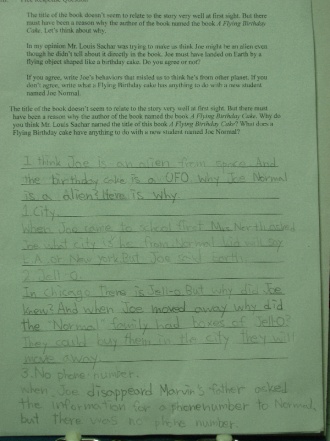 The title of the book doesn't seem to relate to the story very well at first sight. But there
must have been a reason why the author of the book named the book A Flying Birthday
Cake. Let's think about why.
In my opinion Mr. Louis Sachar was trying to make us think Joe might be an alien even
though he didn't tell about it directly in the book. Joe must have landed on Earth by a
flying object shaped like a birthday cake. Do you agree or not?
If you agree, write Joe's behaviors that misled us to think he's from other planet. If you
don't agree, write what a Flying Birthday cake has anything to do with a new student
named Joe Normal.
The title of the book doesn't seem to relate to the story very well at first sight. But there must
have been a reason why the author of the book named the book A Flying Birthday Cake. Why do
you think Mr. Louis Sachar named the title of this book A Flying Birthday Cake? What does a
Flying Birthday cake have anything to do with a new student named Joe Normal?
I think Joe is an alien from space. And
the birthday cake is a UFO. Why Joe Normal
is a alien? Here is why.
1. City
When Joe came to school first Mrs. North asked
Joe what city is he from. Normal kid will say
L.A. or New york But Joe said Earth.
2. Jell-O.
In Chicago There is Jell-o But why did Joe
know? And when Joe moved away why did
the "Normal" family had boxes of Jell-O?
They could buy them in the city They will
move away.
3. No phone number.
when Joe disappeard Marvin's father asked
the information for a phonenumber to Normal,
but there was no phone number.